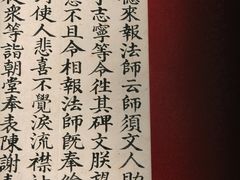 德來報法師云師須文人助
于志寧等令往其碑文朕望
意不且令相報法師既奉綸
對使人悲喜不覺淚流襟
衆等詣朝堂奉表陳謝表